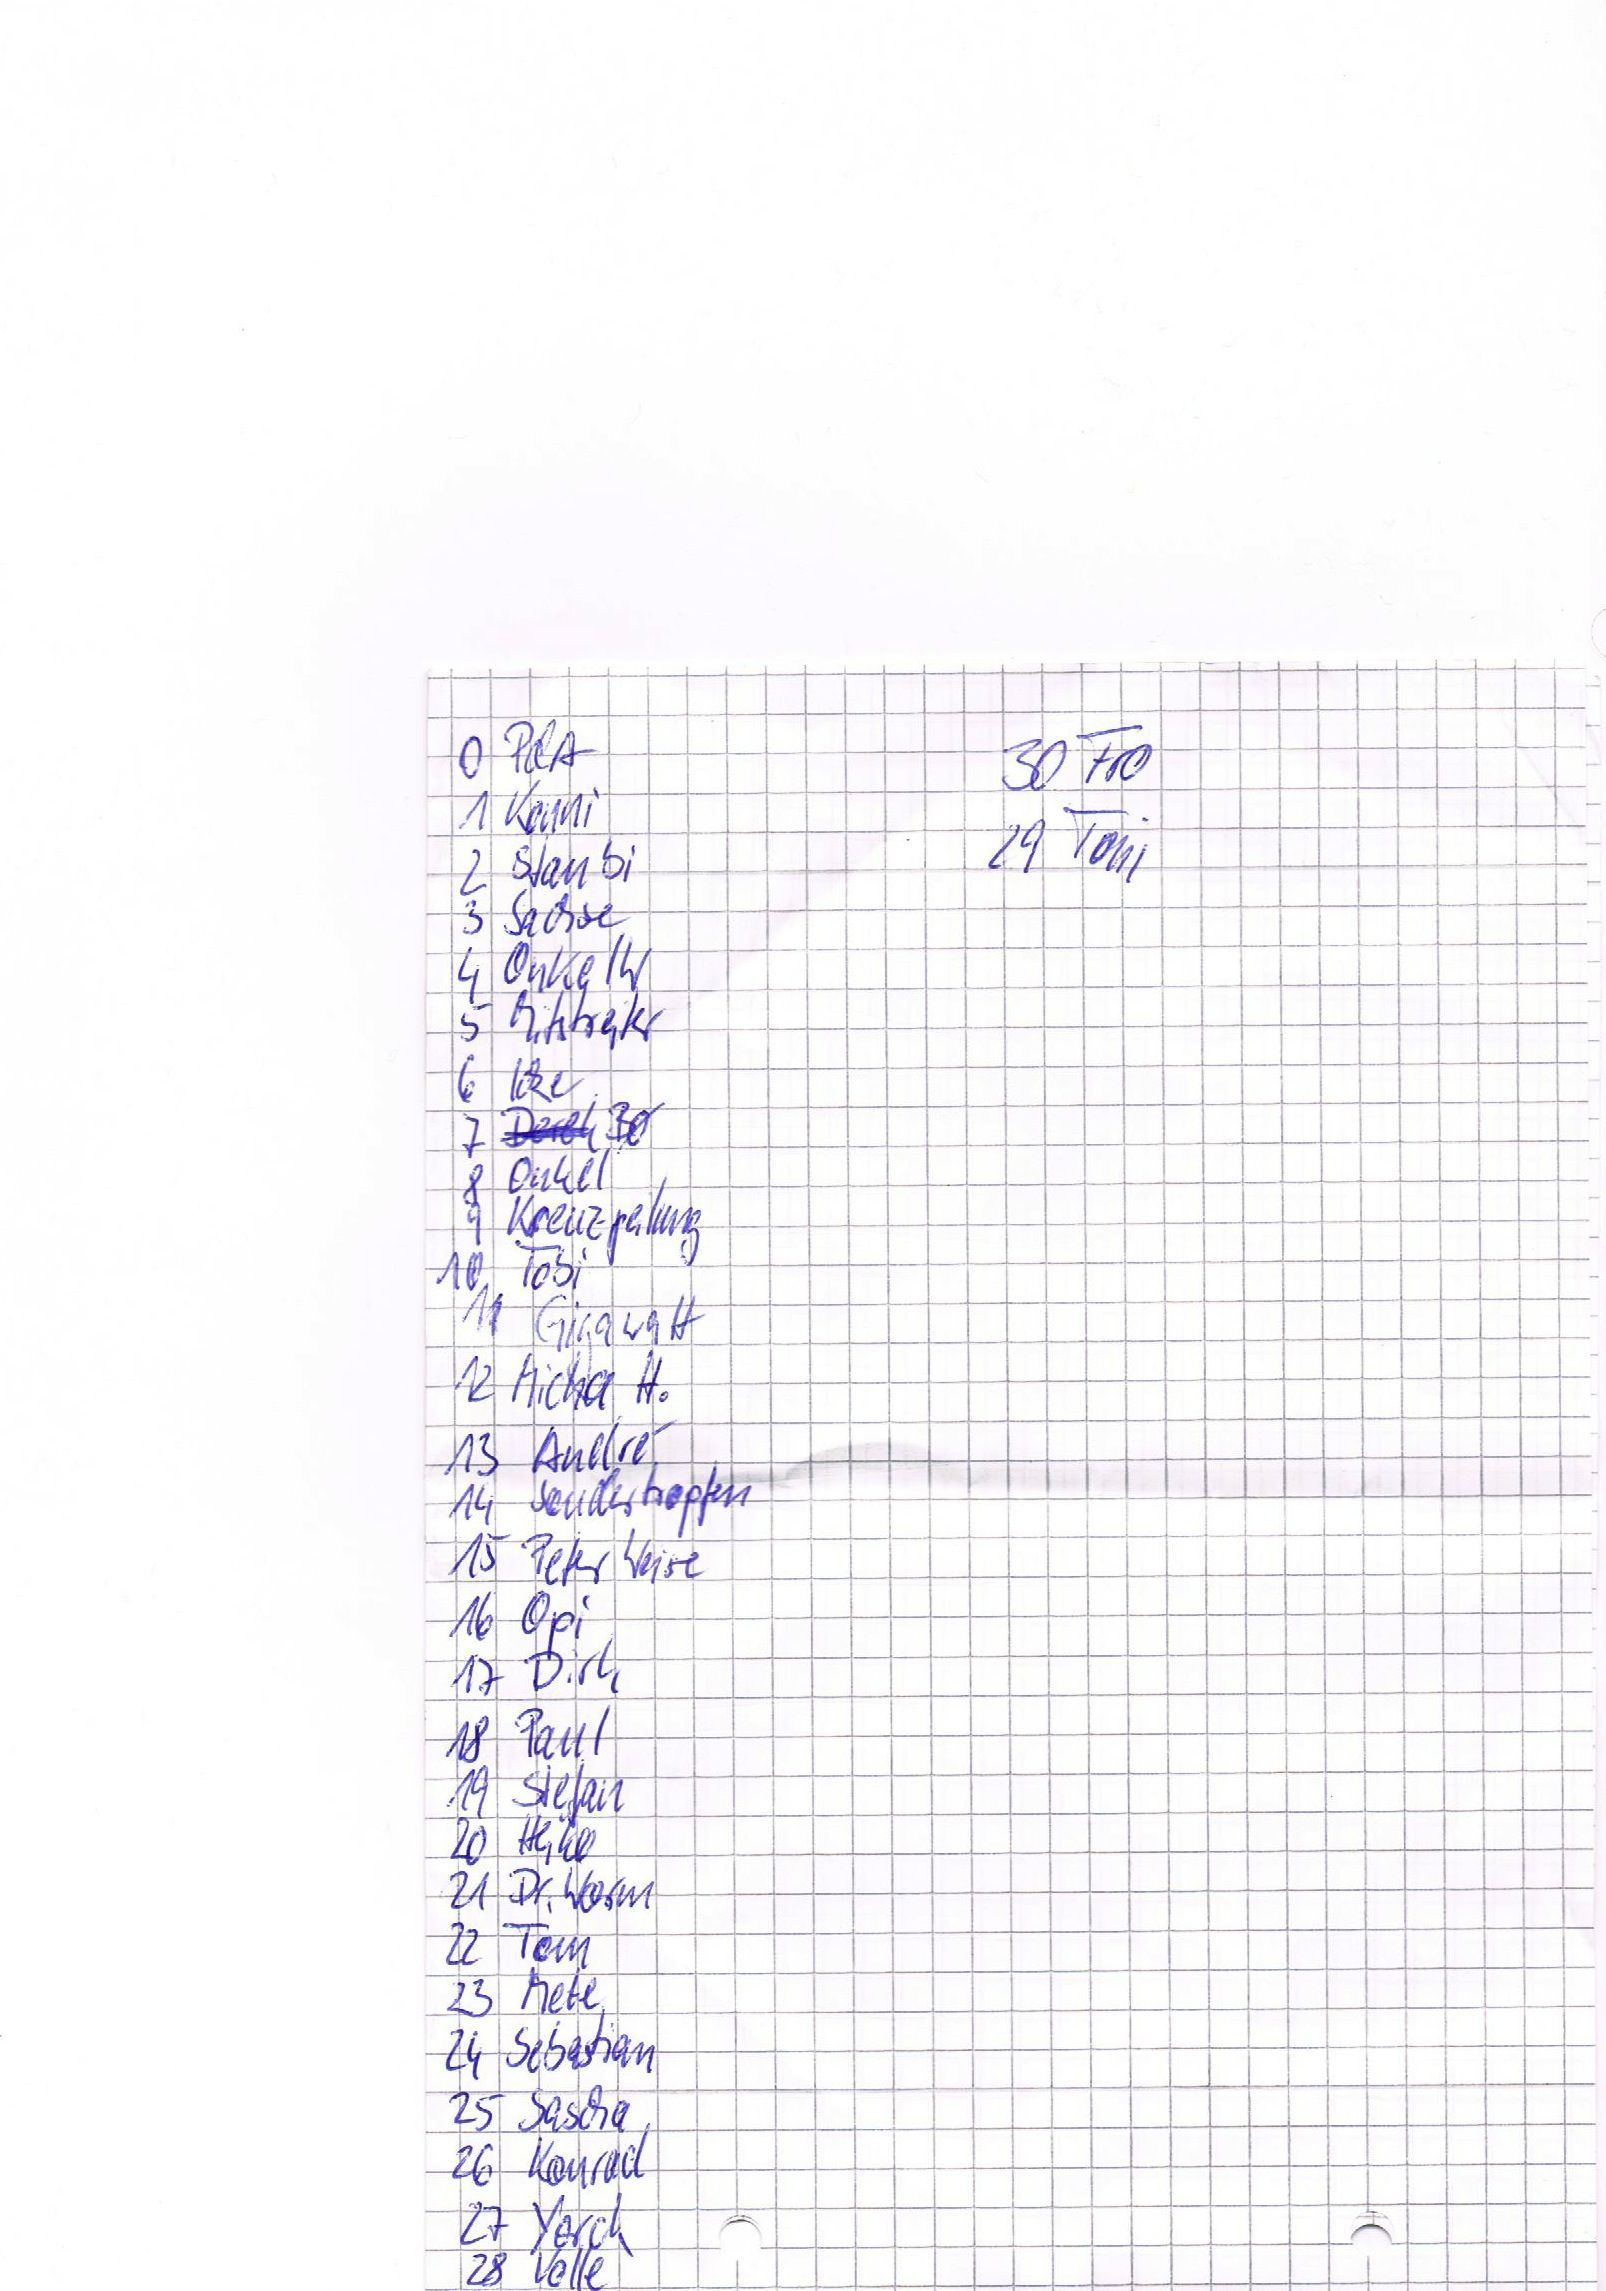 0 PCA
1 Konni
2 Staubi
3 Sachse
4 Onkel W
5 Mitstreiter
6 Icke
7 Bo
8 Onkel
9 Kreuzpeilung
10 Tobi
11 Gigawatt
12 Micha H.
13 André
14
15 Peter Weise
16 Opi
17 Dirk
18 Paul
19 Stefan
20 Heiko
21 Dr. Worm
22 Tom
23 Mete
24 Sebastian
25 Sascha
26 Konrad
27 Yorck
28 Volle
30 Fro
29 Toni